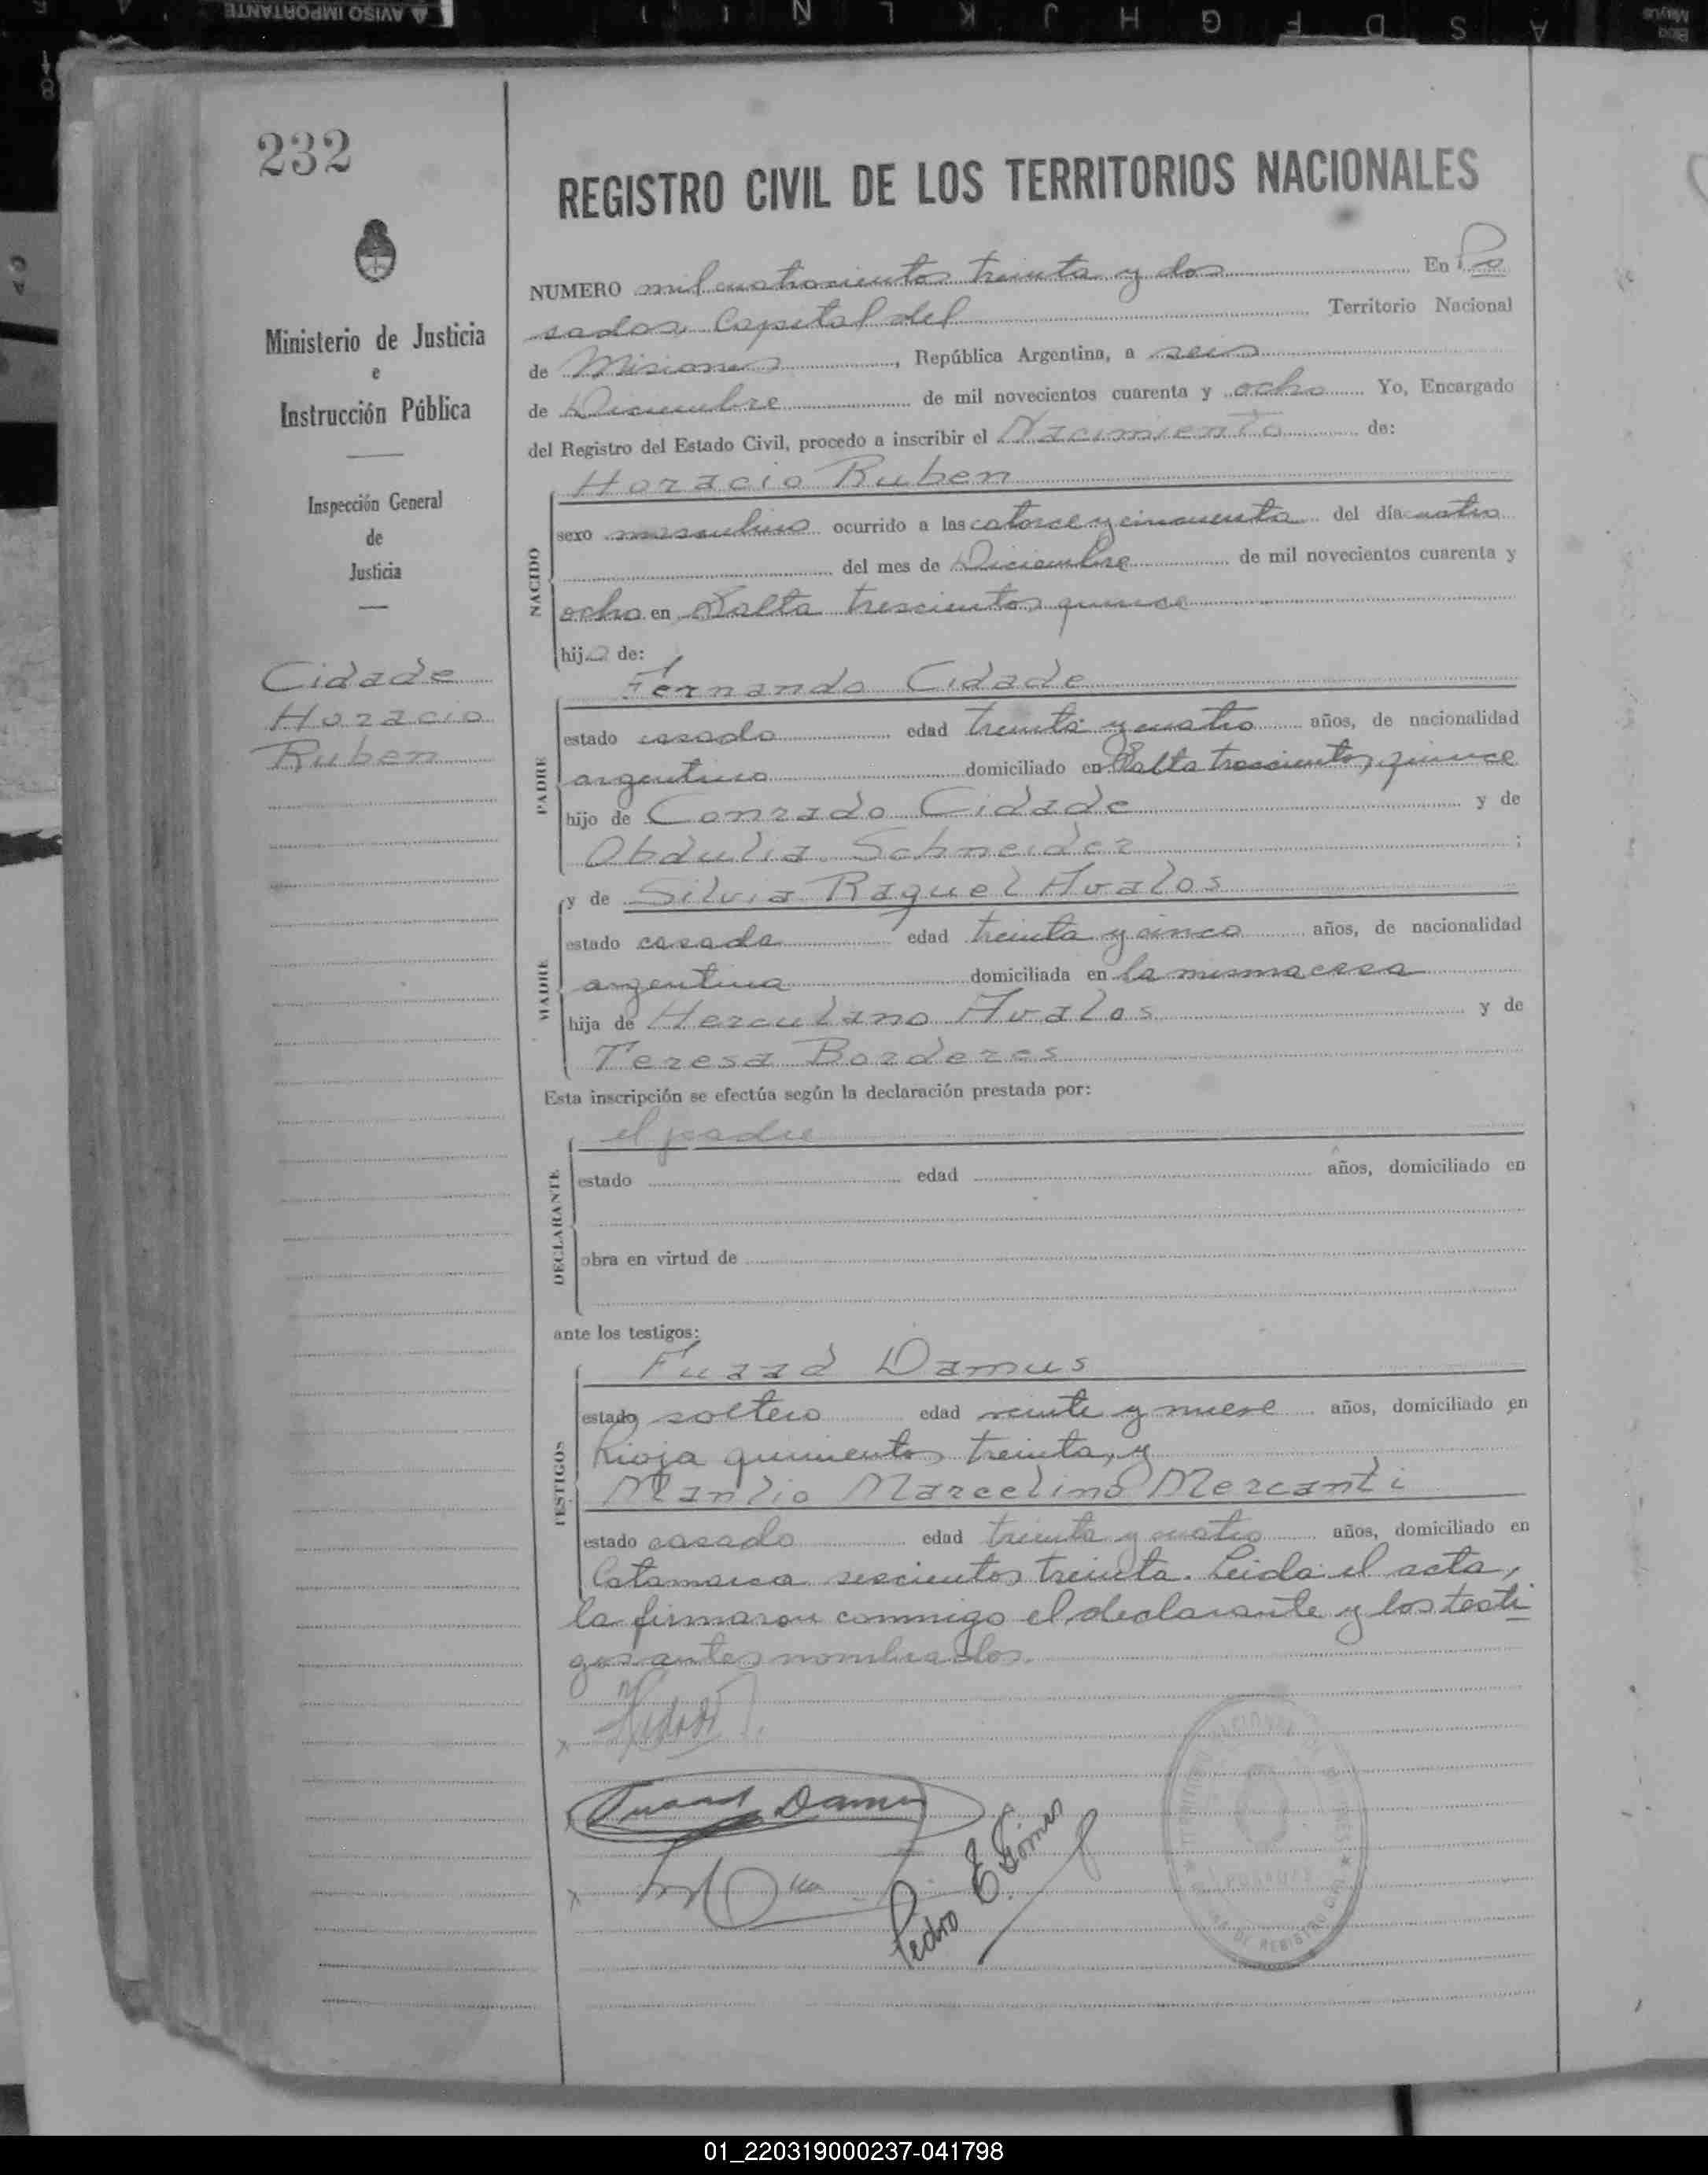 AVISO IMPORTANTE
A S D F G H J K L Ñ
Bloq Mayus
232
REGISTRO CIVIL DE LOS TERRITORIOS NACIONALES
Ministerio de Justicia
e
Instrucción Pública
Inspección General
de
Justicia
Cidade
Horacio
Ruben
NUMERO mil cuatrocientos treinta y dos En Po
sadas, Capital del Territorio Nacional
de Misiones, República Argentina, a seis
de Diciembre de mil novecientos cuarenta y ocho Yo, Encargado
del Registro del Estado Civil, procedo a inscribir el Nacimiento de:
Horacio Ruben
NACIDO
sexo masculino ocurrido a las catorce y cincuenta del día cuatro
del mes de Diciembre de mil novecientos cuarenta y
ocho en Salta trescientos quince
hijo de:
Fernando Cidade
PADRE
estado casado edad treinta y cuatro años, de nacionalidad
argentino domiciliado en Salta trescientos quince
hijo de Conrado Cidade y de
Obdulia Schneider ;
y de Silvia Raquel Avalos
MADRE
estado casada edad treinta y cinco años, de nacionalidad
argentina domiciliada en la misma casa
hija de Herculano Avalos y de
Teresa Borderes
Esta inscripción se efectúa según la declaración prestada por:
el padre
DECLARANTE
estado edad años, domiciliado en
obra en virtud de
ante los testigos:
Fuaad Damus
TESTIGOS
estado soltero edad veinte y nueve años, domiciliado en
Rioja quinientos treinta, y
Manlio Marcelino Mercanti
estado casado edad treinta y cuatro años, domiciliado en
Catamarca seiscientos treinta. Leida el acta,
la firmaron conmigo el declarante y los testi
gos antes nombrados.
Fuaad Damus
Pedro E. Gómez
01_220319000237-041798